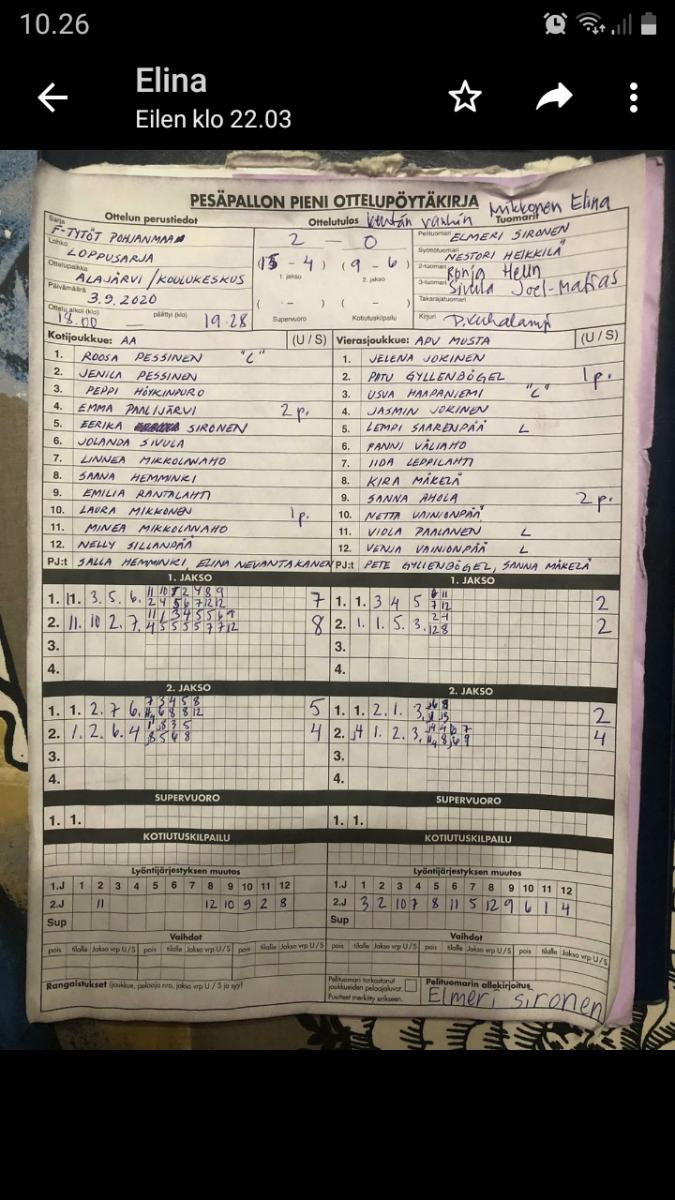 10.26
Elina
Eilen klo 22.03
PESÄPALLON PIENI OTTELUPÖYTÄKIRJA
Mikkonen Elina
Ottelun perustiedot
Ottelutulos
Tuomarit
Sarja
F-TYTÖT POHJANMAA
Lohko
LOPPUSARJA
Ottelupaikka
ALAJÄRVI / KOULUKESKUS
Päivämäärä
3.9.2020
Ottelu alkoi (klo) 18.00 päättyi (klo) 19.28
2 — 0
(15 - 4) (9 - 6)
1. jakso 2. jakso
( - ) ( - )
Supervuoro Kotiutuskilpailu
Pelituomari ELMERI SIRONEN
Syöttötuomari NESTORI HEIKKILÄ
2-tuomari Ronja Helin
3-tuomari Sivula Joel-Matias
Takarajatuomari
Kirjuri
Kotijoukkue: AA (U / S)
1. ROOSA PESSINEN "C"
2. JENICA PESSINEN
3. PEPPI HÖYKINPURO
4. EMMA PAALIJÄRVI 2 p.
5. EERIKA SIRONEN
6. JOLANDA SIVULA
7. LINNEA MIKKOLANAHO
8. SAANA HEMMINKI
9. EMILIA RANTALAHTI
10. LAURA MIKKONEN 1 p.
11. MINEA MIKKOLANAHO
12. NELLY SILLANPÄÄ
PJ:t SALLA HEMMINKI, ELINA NEVANTAKANEN
Vierasjoukkue: APV MUSTA (U / S)
1. JELENA JOKINEN
2. PIITU GYLLENBÖGEL 1 p.
3. USVA HAAPANIEMI "C"
4. JASMIN JOKINEN
5. LEMPI SAARENPÄÄ L
6. FANNI VÄLIAHO
7. IIDA LEPPILAHTI
8. KIRA MÄKELÄ
9. SANNA AHOLA 2 p.
10. NETTA VAINIONPÄÄ
11. VIOLA PAALANEN L
12. VENJA VAINIONPÄÄ L
PJ:t PETE GYLLENBÖGEL, SANNA MÄKELÄ
1. JAKSO
1. 11. 3. 5. 6. 7
2. 11. 10 2. 7. 8
3.
4.
1. JAKSO
1. 1. 3 4 5 2
2. 1. 1. 5. 3. 2
3.
4.
2. JAKSO
1. 1. 2. 7 6. 5
2. 1. 2. 6. 4 4
3.
4.
2. JAKSO
1. 1. 2. 1. 3. 2
2. 1. 2. 3. 4
3.
4.
SUPERVUORO
1. 1.
SUPERVUORO
1. 1.
KOTIUTUSKILPAILU
KOTIUTUSKILPAILU
Lyöntijärjestyksen muutos
1.J 1 2 3 4 5 6 7 8 9 10 11 12
2.J 11 12 10 9 2 8
Sup
Lyöntijärjestyksen muutos
1.J 1 2 3 4 5 6 7 8 9 10 11 12
2.J 3 2 10 7 8 11 5 12 9 6 1 4
Sup
Vaihdot
pois tilalle Jakso vrp U / S pois tilalle Jakso vrp U / S pois tilalle Jakso vrp U / S
Vaihdot
pois tilalle Jakso vrp U / S pois tilalle Jakso vrp U / S pois tilalle Jakso vrp U / S
Rangaistukset (joukkue, pelaaja nro, jakso, vrp U / S ja syy)
Pelituomari tarkastanut
joukkueiden pelaajaluvat.
Puutteet merkitty erikseen.
Pelituomarin allekirjoitus
Elmeri sironen